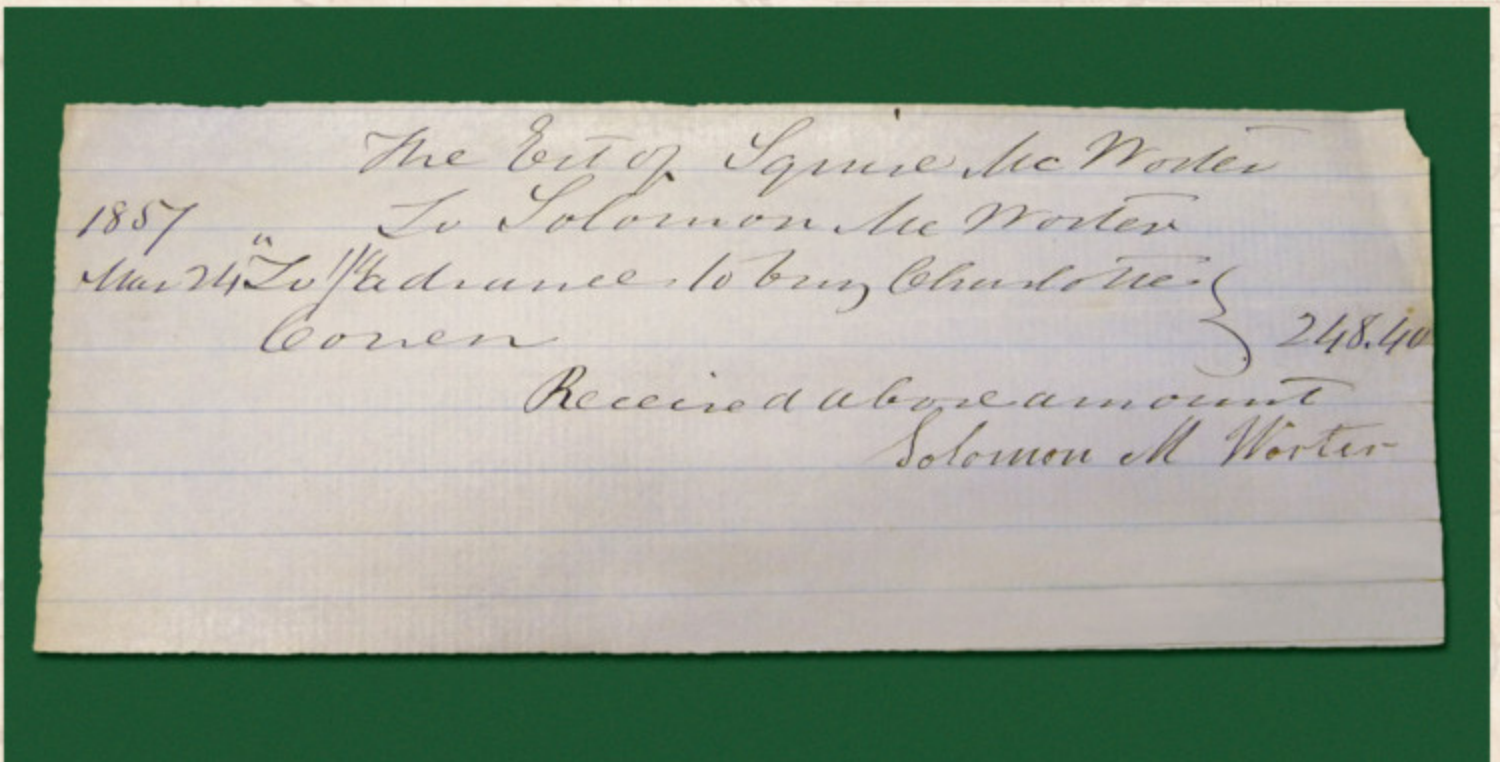 The Est of Squire McWorter
1857 To Solomon McWorter
Mar 24 " To 1/2 advance to buy Charlotte
Coven 248.40
Received above amount
Solomon M Worter